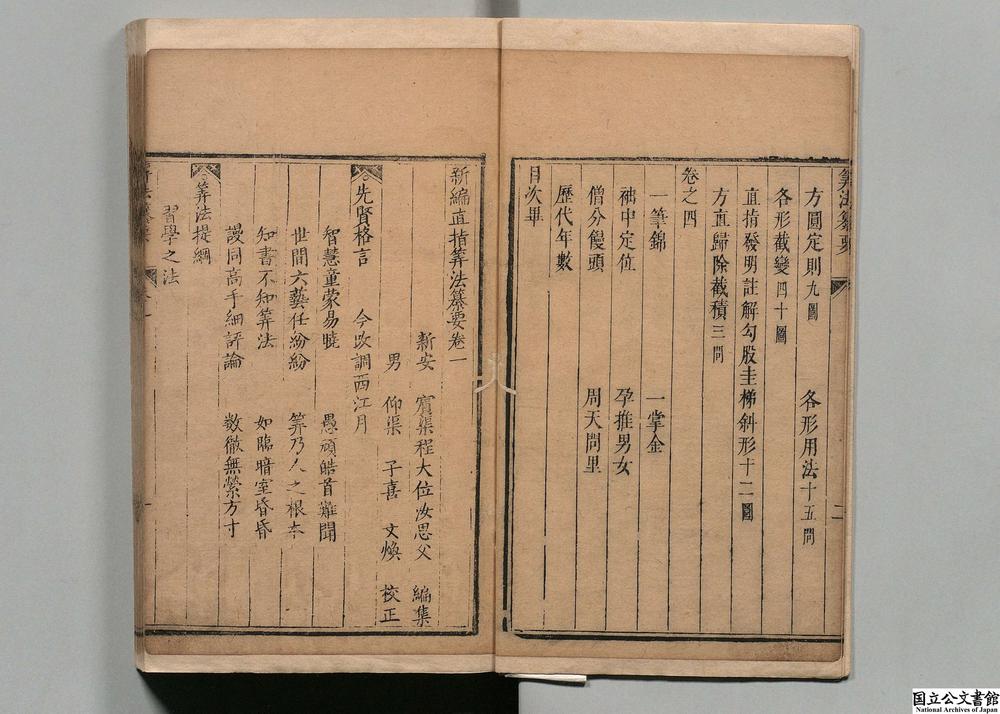 算法纂要
二
方圓定則九圖　各形用法十五問
各形截變四十圖
直指發明註解勾股圭梯斜形十二圖
方直歸除截積三問
卷之四
一筆錦　一掌金
袖中定位　孕推男女
僧分饅頭　周天問里
歷代年數
目次畢
新編直指筭法纂要卷一
新安　賓渠程大位汝思父　編集
男　仰渠　子喜　文煥　校正
先賢格言　今攺調西江月
智慧童蒙易曉　愚頑皓首難聞
世間六藝任紛紛　筭乃人之根本
知書不知筭法　如臨暗室昏昏
謾同高手細評論　数徹無縈方寸
筭法提綱
習學之法
国立公文書館
National Archives of Japan